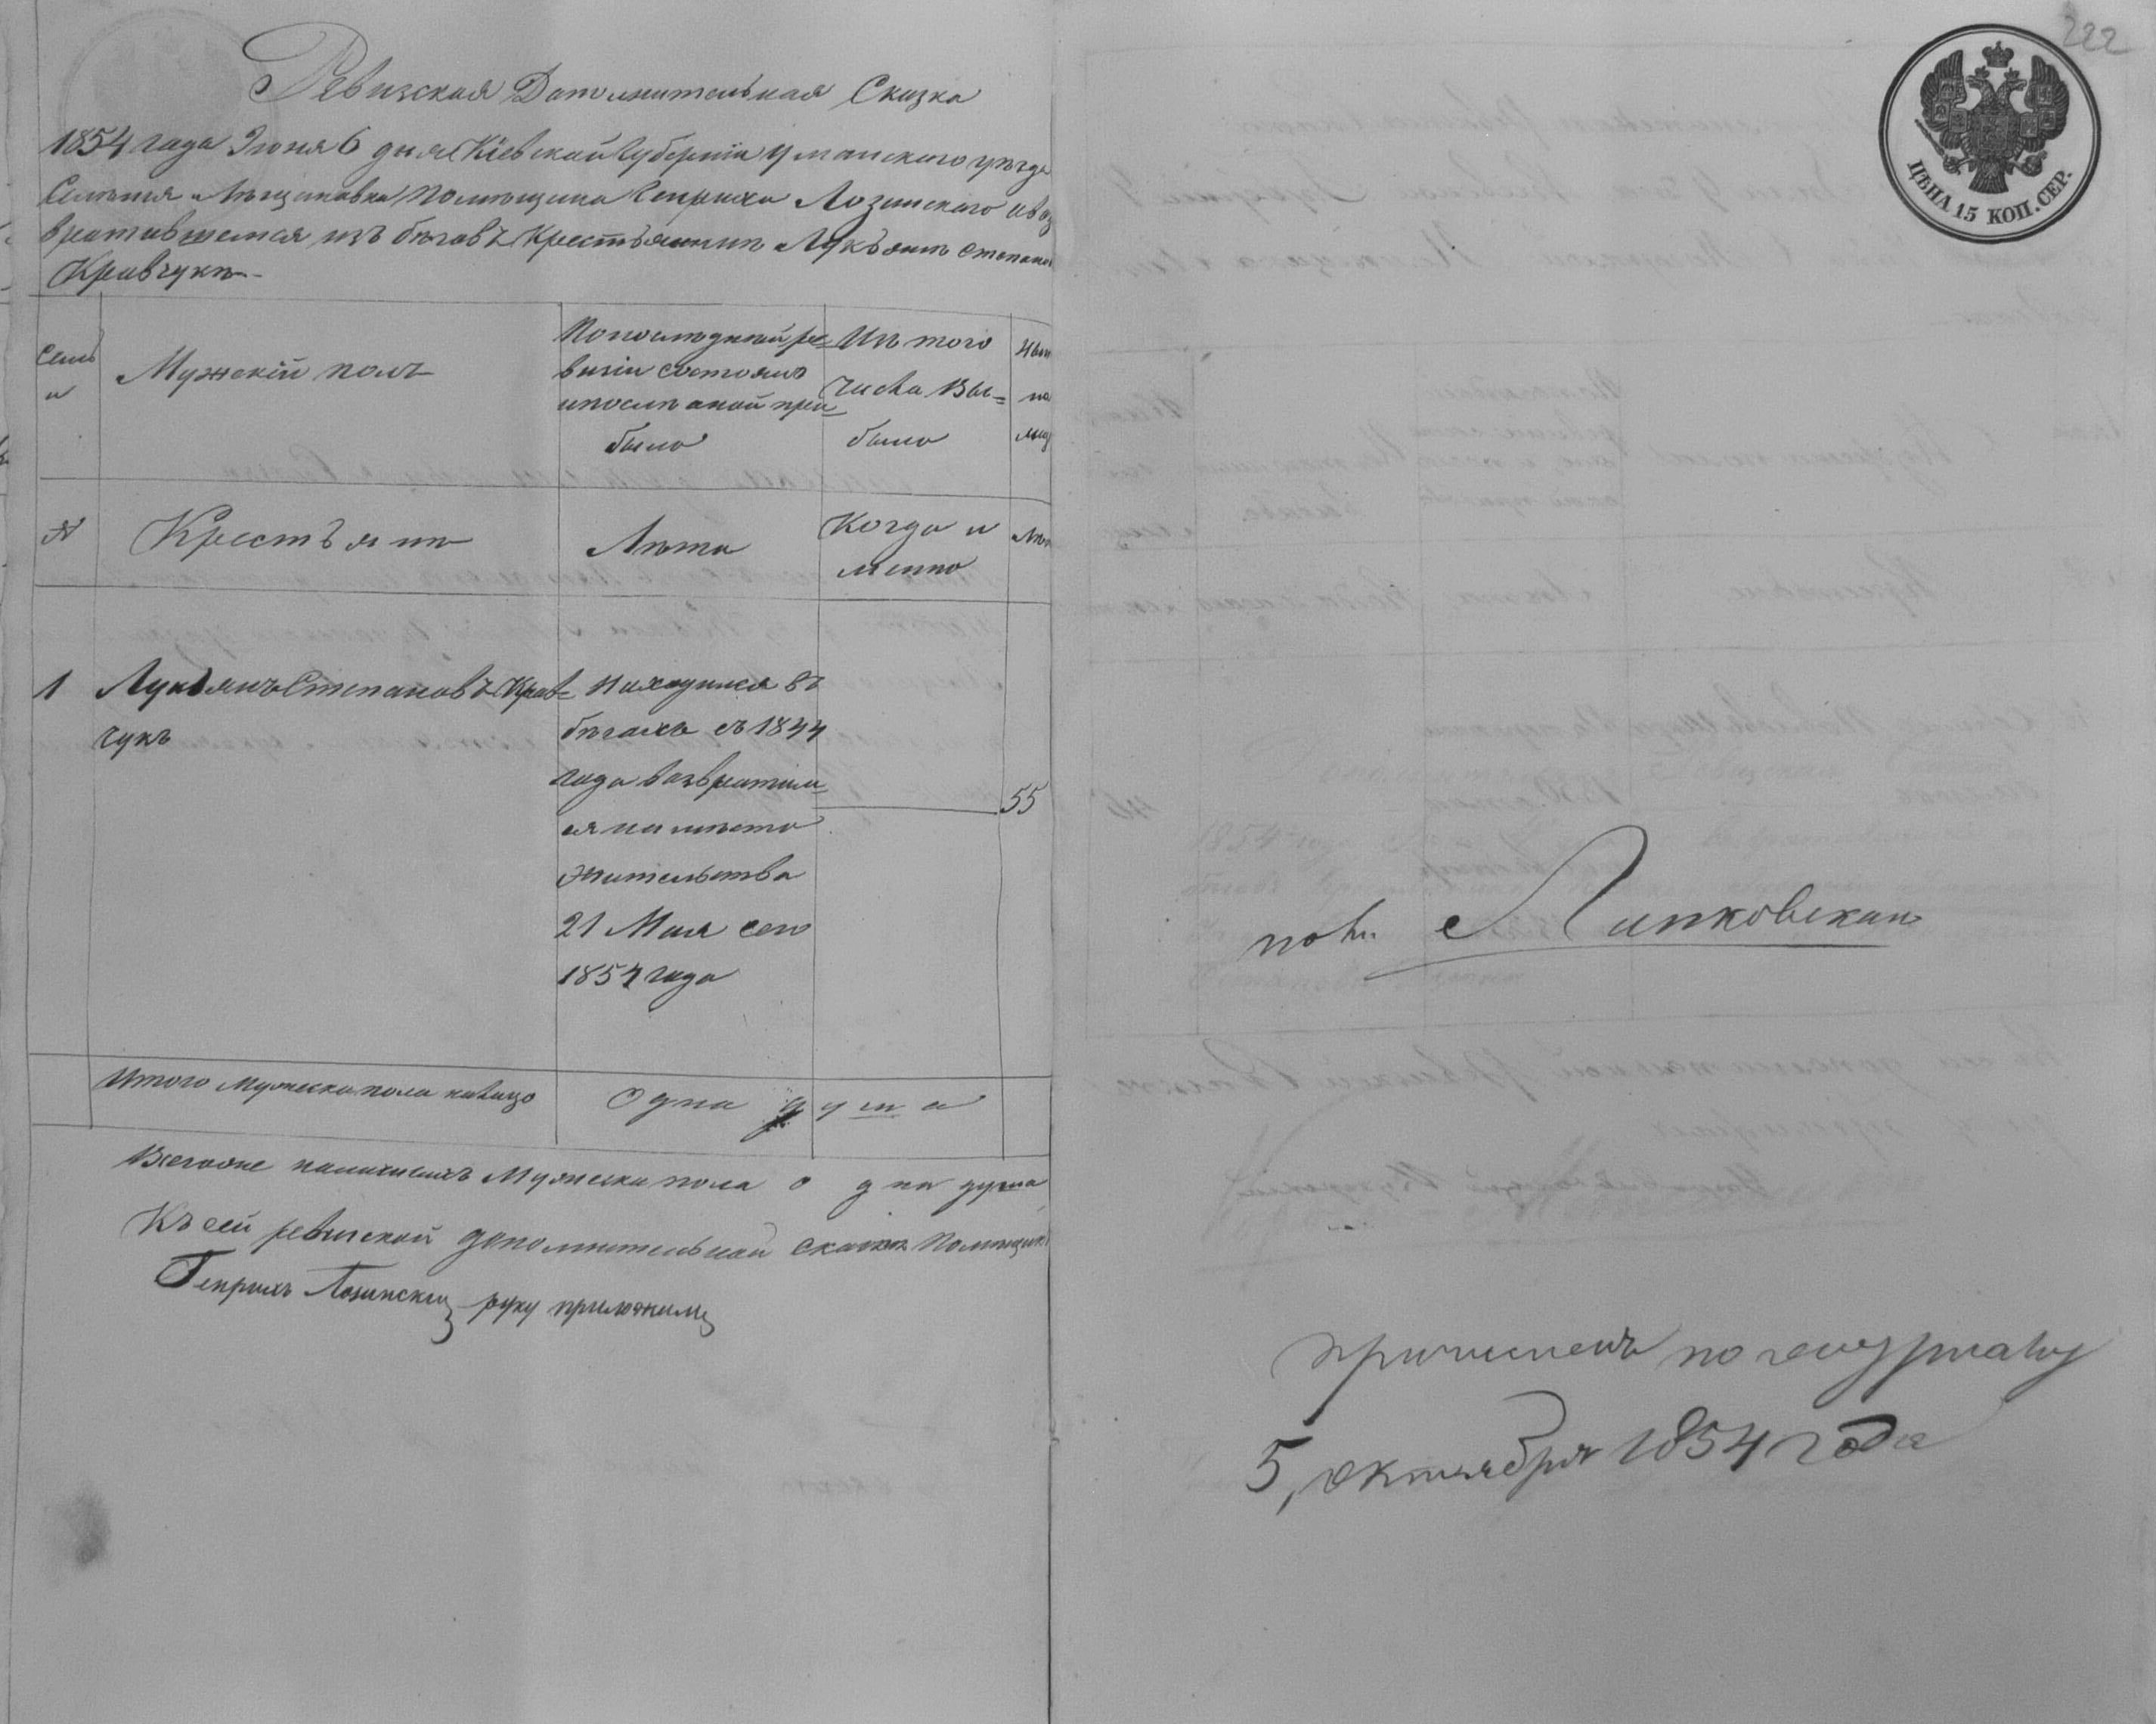 Ревизская Дополнительная Сказка
1854 года Іюня 6 дня Кіевской Губерніи Уманского уезда
Селенія Помещика Генриха Лозинского овоз
вратившемся изъ беговъ Крестьянин Лукъян Степанов
Кравчукъ
Семьи
Мужскій полъ
По последней ре=
визіи состояло
и после оной при
было
Изъ того
числа вы=
было
Ныне
на
лицо
№
Крестьяне
Лета
Когда и
менно
Лета
1
Лукьянъ Степановъ Крав=
чукъ
Находился въ
бегахъ съ 1844
года возвратил
ся на место
жительства
21 Мая сего
1854 года
55
Итого Мужеска пола налицо
Одна душа
Всего же наличныхъ Мужеска пола одна душа
Къ сей ревизской дополнительной сказке Помещикъ
Генрихъ Лозинскій руку приложилъ
222
ЦѢНА 15 КОП. СЕР.
Липковскій
причисленъ по журналу
5, октября 1854 года